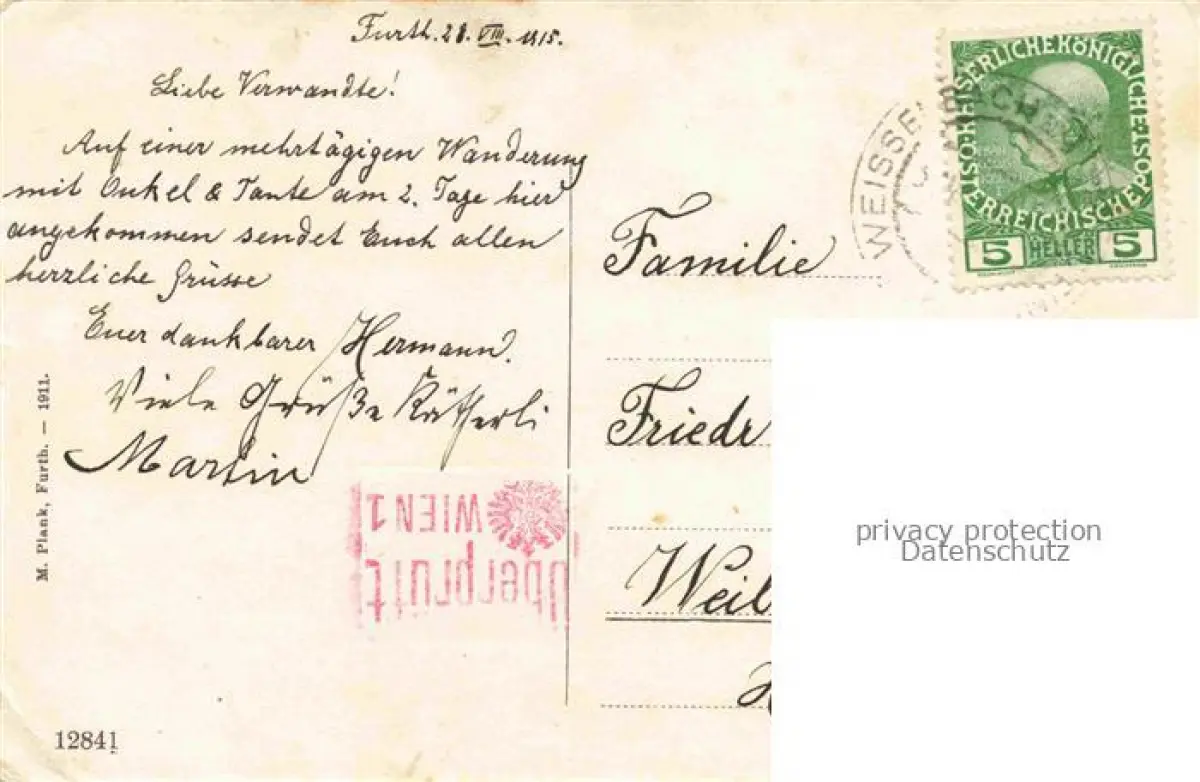 Furth. 28. VIII. 1915.
Liebe Verwandte!
Auf einer mehrtägigen Wanderung
mit Onkel & Tante am 2. Tage hier
angekommen sendet Euch allen
herzliche Grüsse
Euer dankbarer Hermann.
Viele Grüße Kätherli
Martin
M. Plank, Furth. — 1911.
12841
überprüft
WIEN 1
WEISSENBACH
KAISERLICHE KÖNIGLICHE ÖSTERREICHISCHE POST
5 HELLER 5
Familie
Friedr
Weil
privacy protection
Datenschutz